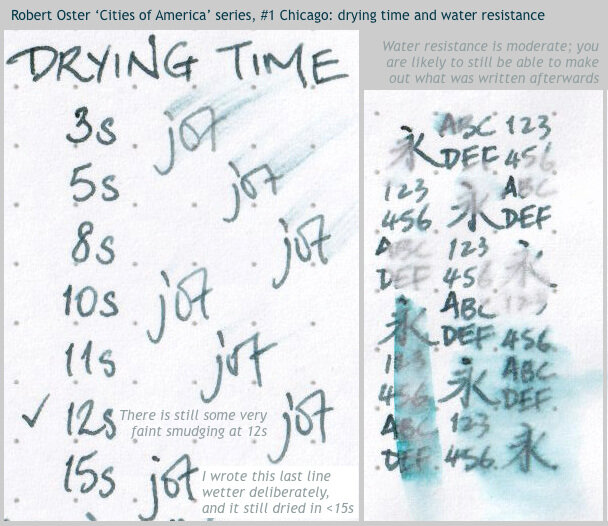 Robert Oster ‘Cities of America’ series, #1 Chicago: drying time and water resistance
DRYING TIME
3s jot
5s jot
8s jot
10s jot
11s jot
✓ 12s There is still some very
faint smudging at 12s jot
15s jot I wrote this last line
wetter deliberately,
and it still dried in <15s
Water resistance is moderate; you
are likely to still be able to make
out what was written afterwards
永 ABC 123
DEF 456
123 永 ABC
456 DEF
ABC 123 永
DEF 456
永 ABC 123
DEF 456
123 永 ABC
456 DEF
ABC 123 永
DEF 456